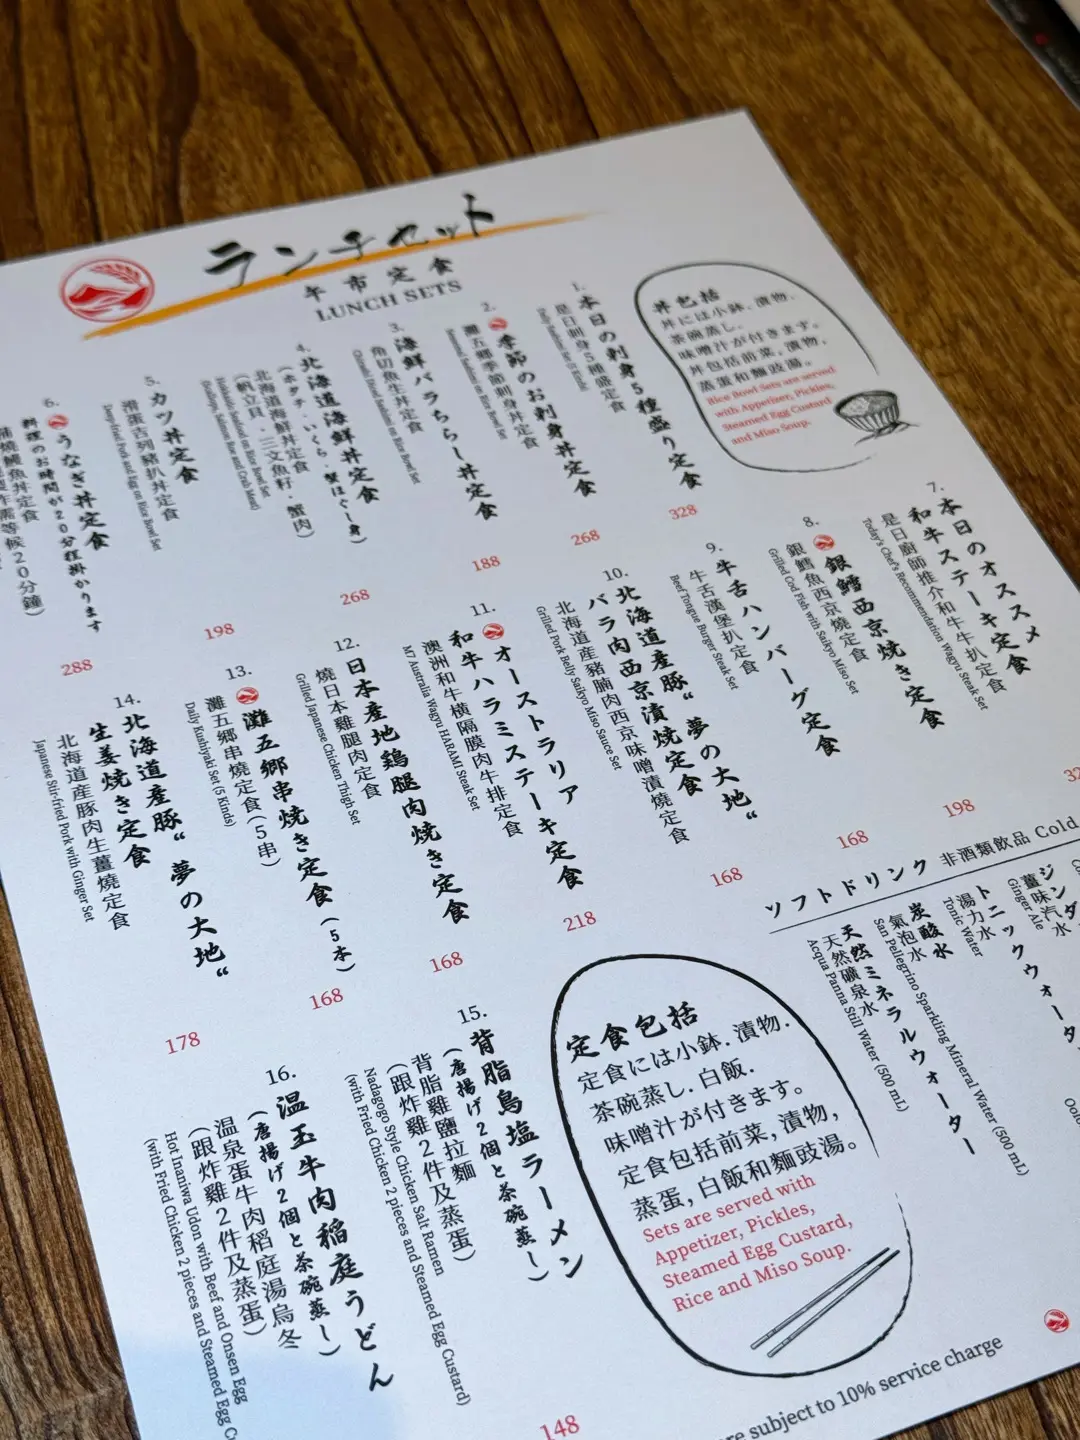 ランチセット
午市定食
LUNCH SETS
丼包括
丼には小鉢．漬物．
茶碗蒸し．
味噌汁が付きます。
丼包括前菜，漬物，
蒸蛋和麵豉湯。
Rice Bowl Sets are served
with Appetizer, Pickles,
Steamed Egg Custard
and Miso Soup.
1.
本日の刺身5種盛り定食
是日刺身5種盛定食
328
2.
季節のお刺身丼定食
灘五郷季節刺身丼定食
268
3.
海鮮バラちらし丼定食
角切魚生丼定食
188
4.
北海道海鮮丼定食
（ホタテ・いくら・蟹ほぐし身）
北海道海鮮丼定食
（帆立貝・三文魚籽・蟹肉）
268
5.
カツ丼定食
滑蛋吉列豬扒丼定食
198
6.
うなぎ丼定食
料理のお時間が20分程掛かります
蒲燒鰻魚丼定食
需等候20分鐘）
288
7.
本日のオススメ
和牛ステーキ定食
是日廚師推介和牛牛扒定食
Today's Chef's Recommendation Wagyu Steak Set
8.
銀鱈西京焼き定食
銀鱈魚西京燒定食
Grilled Cod Fish with Saikyo Miso Set
198
9.
牛舌ハンバーグ定食
牛舌漢堡扒定食
Beef Tongue Burger Steak Set
168
10.
北海道産豚“夢の大地“
バラ肉西京漬焼定食
北海道産豬腩肉西京味噌漬燒定食
Grilled Pork Belly Saikyo Miso Sauce Set
168
11.
オーストラリア
和牛ハラミステーキ定食
澳洲和牛橫隔膜肉牛排定食
M7 Australia Wagyu HARAMI Steak Set
218
12.
日本産地鶏腿肉焼き定食
燒日本雞腿肉定食
Grilled Japanese Chicken Thigh Set
168
13.
灘五郷串焼き定食（5本）
灘五郷串燒定食（5串）
Daily Kushiyaki Set (5 Kinds)
168
14.
北海道産豚“夢の大地“
生姜焼き定食
北海道産豚肉生薑燒定食
Japanese Stir-fried Pork with Ginger Set
178
15.
背脂鳥塩ラーメン
（唐揚げ2個と茶碗蒸し）
背脂雞鹽拉麵
（跟炸雞2件及蒸蛋）
Nadagogo Style Chicken Salt Ramen
(with Fried Chicken 2 pieces and Steamed Egg Custard)
148
16.
温玉牛肉稲庭うどん
（唐揚げ2個と茶碗蒸し）
温泉蛋牛肉稻庭湯烏冬
（跟炸雞2件及蒸蛋）
Hot Inaniwa Udon with Beef and Onsen Egg
(with Fried Chicken 2 pieces and Steamed Egg
定食包括
定食には小鉢．漬物．
茶碗蒸し．白飯．
味噌汁が付きます。
定食包括前菜，漬物，
蒸蛋，白飯和麵豉湯。
Sets are served with
Appetizer, Pickles,
Steamed Egg Custard,
Rice and Miso Soup.
ソフトドリンク 非酒類飲品 Cold
薑味汽水
Ginger Ale
トニックウォータ
湯力水
Tonic Water
炭酸水
氣泡水
San Pellegrino Sparkling Mineral Water (500 mL)
天然ミネラルウォーター
天然礦泉水
Acqua Panna Still Water (500 mL)
subject to 10% service charge